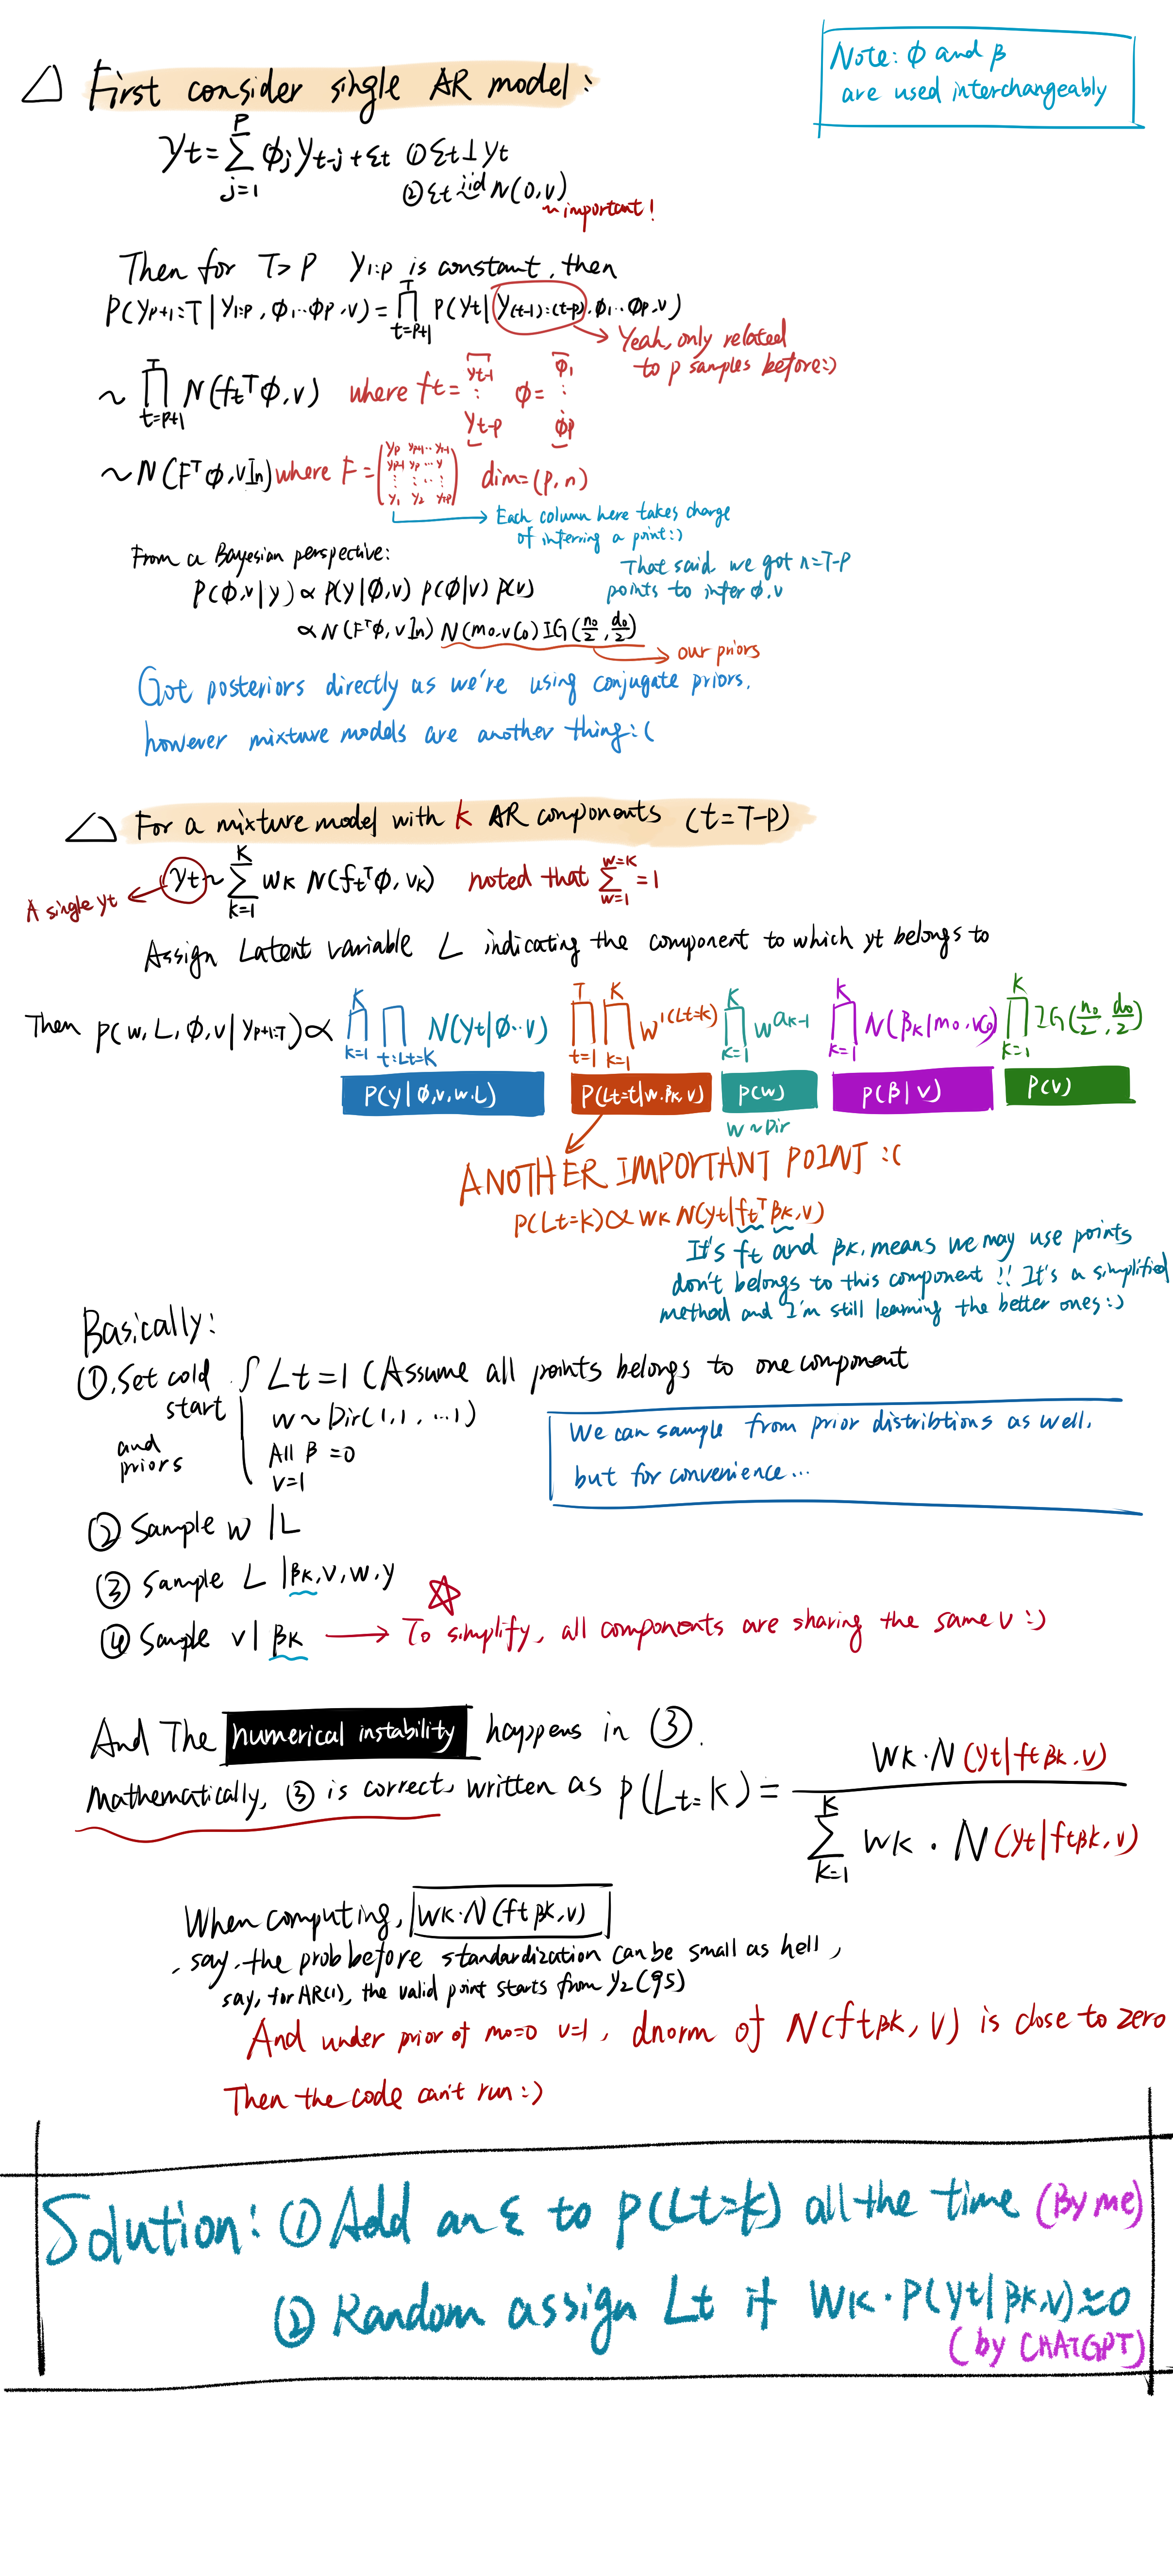 Note: φ and β
are used interchangeably
△ First consider single AR model:
yt = Σ_{j=1}^{p} φj yt-j + εt ① εt ⊥ yt
② εt iid~ N(0, v)
~ important!
Then for T > P y1:p is constant, then
P(yp+1:T | y1:p, φ1...φp, v) = ∏_{t=p+1}^{T} P(yt | y(t-1):(t-p), φ1...φp, v)
→ Yeah, only related
to p samples before:)
~ ∏_{t=p+1}^{T} N(ft^T φ, v) where ft = [yt-1 ⋮ yt-p] φ = [φ1 ⋮ φp]
~ N(F^T φ, vIn) where F = dim = (p, n)
→ Each column here takes charge
of inferring a point:)
From a Bayesian perspective:
That said we got n=T-P
points to infer φ, v
P(φ, v | y) ∝ P(y | φ, v) P(φ | v) P(v)
∝ N(F^T φ, vIn) N(m0, vC0) IG(n0/2, d0/2)
→ our priors
Got posteriors directly as we're using conjugate priors,
however mixture models are another thing:(
△ For a mixture model with k AR components (t = T-P)
yt ~ Σ_{k=1}^{K} wk N(ft^T φ, vk) noted that Σ_{w=1}^{w=k} = 1
A single yt ←
Assign Latent variable L indicating the component to which yt belongs to
Then P(w, L, φ, v | yp+1:T) ∝ ∏_{k=1}^{K} ∏_{t:Lt=k} N(yt | φ·· v) ∏_{t=1}^{T} ∏_{k=1}^{K} w^{1(Lt=k)} ∏_{k=1}^{K} w^{ak-1} ∏_{k=1}^{K} N(βk | m0, vC0) ∏_{k=1}^{K} IG(n0/2, d0/2)
P(y | φ, v, w, L) P(Lt=t | w, βk, v) P(w) P(β | v) P(v)
w ~ Dir
ANOTHER IMPORTANT POINT :(
P(Lt=k) ∝ wk N(yt | ft^T βk, v)
It's ft and βk, means we may use points
don't belongs to this component !! It's a simplified
method and I'm still learning the better ones:)
Basically:
①. Set cold { Lt = 1 (Assume all points belongs to one component
start w ~ Dir(1, 1, ...1)
and All β = 0
priors v=1
We can sample from prior distribtions as well,
but for convenience...
② Sample w | L
③ Sample L | βk, v, w, y
④ Sample v | βk → To simplify, all components are sharing the same v :)
And The numerical instability happens in ③.
Mathematically, ③ is correct, written as P(Lt=k) = wk·N(yt | ft βk, v) / Σ_{k=1}^{K} wk · N(yt | ft βk, v)
When computing, wk·N(ft βk, v)
, say, the prob before standardization can be small as hell,
say, for AR(1), the valid point starts from y2 (95)
And under prior of m0=0 v=1, dnorm of N(ft βk, v) is close to zero
Then the code can't run :)
Solution: ① Add an ε to P(Lt=k) all the time (By me)
② Random assign Lt if wk·P(yt | βk, v) ≈ 0
(by CHATGPT)